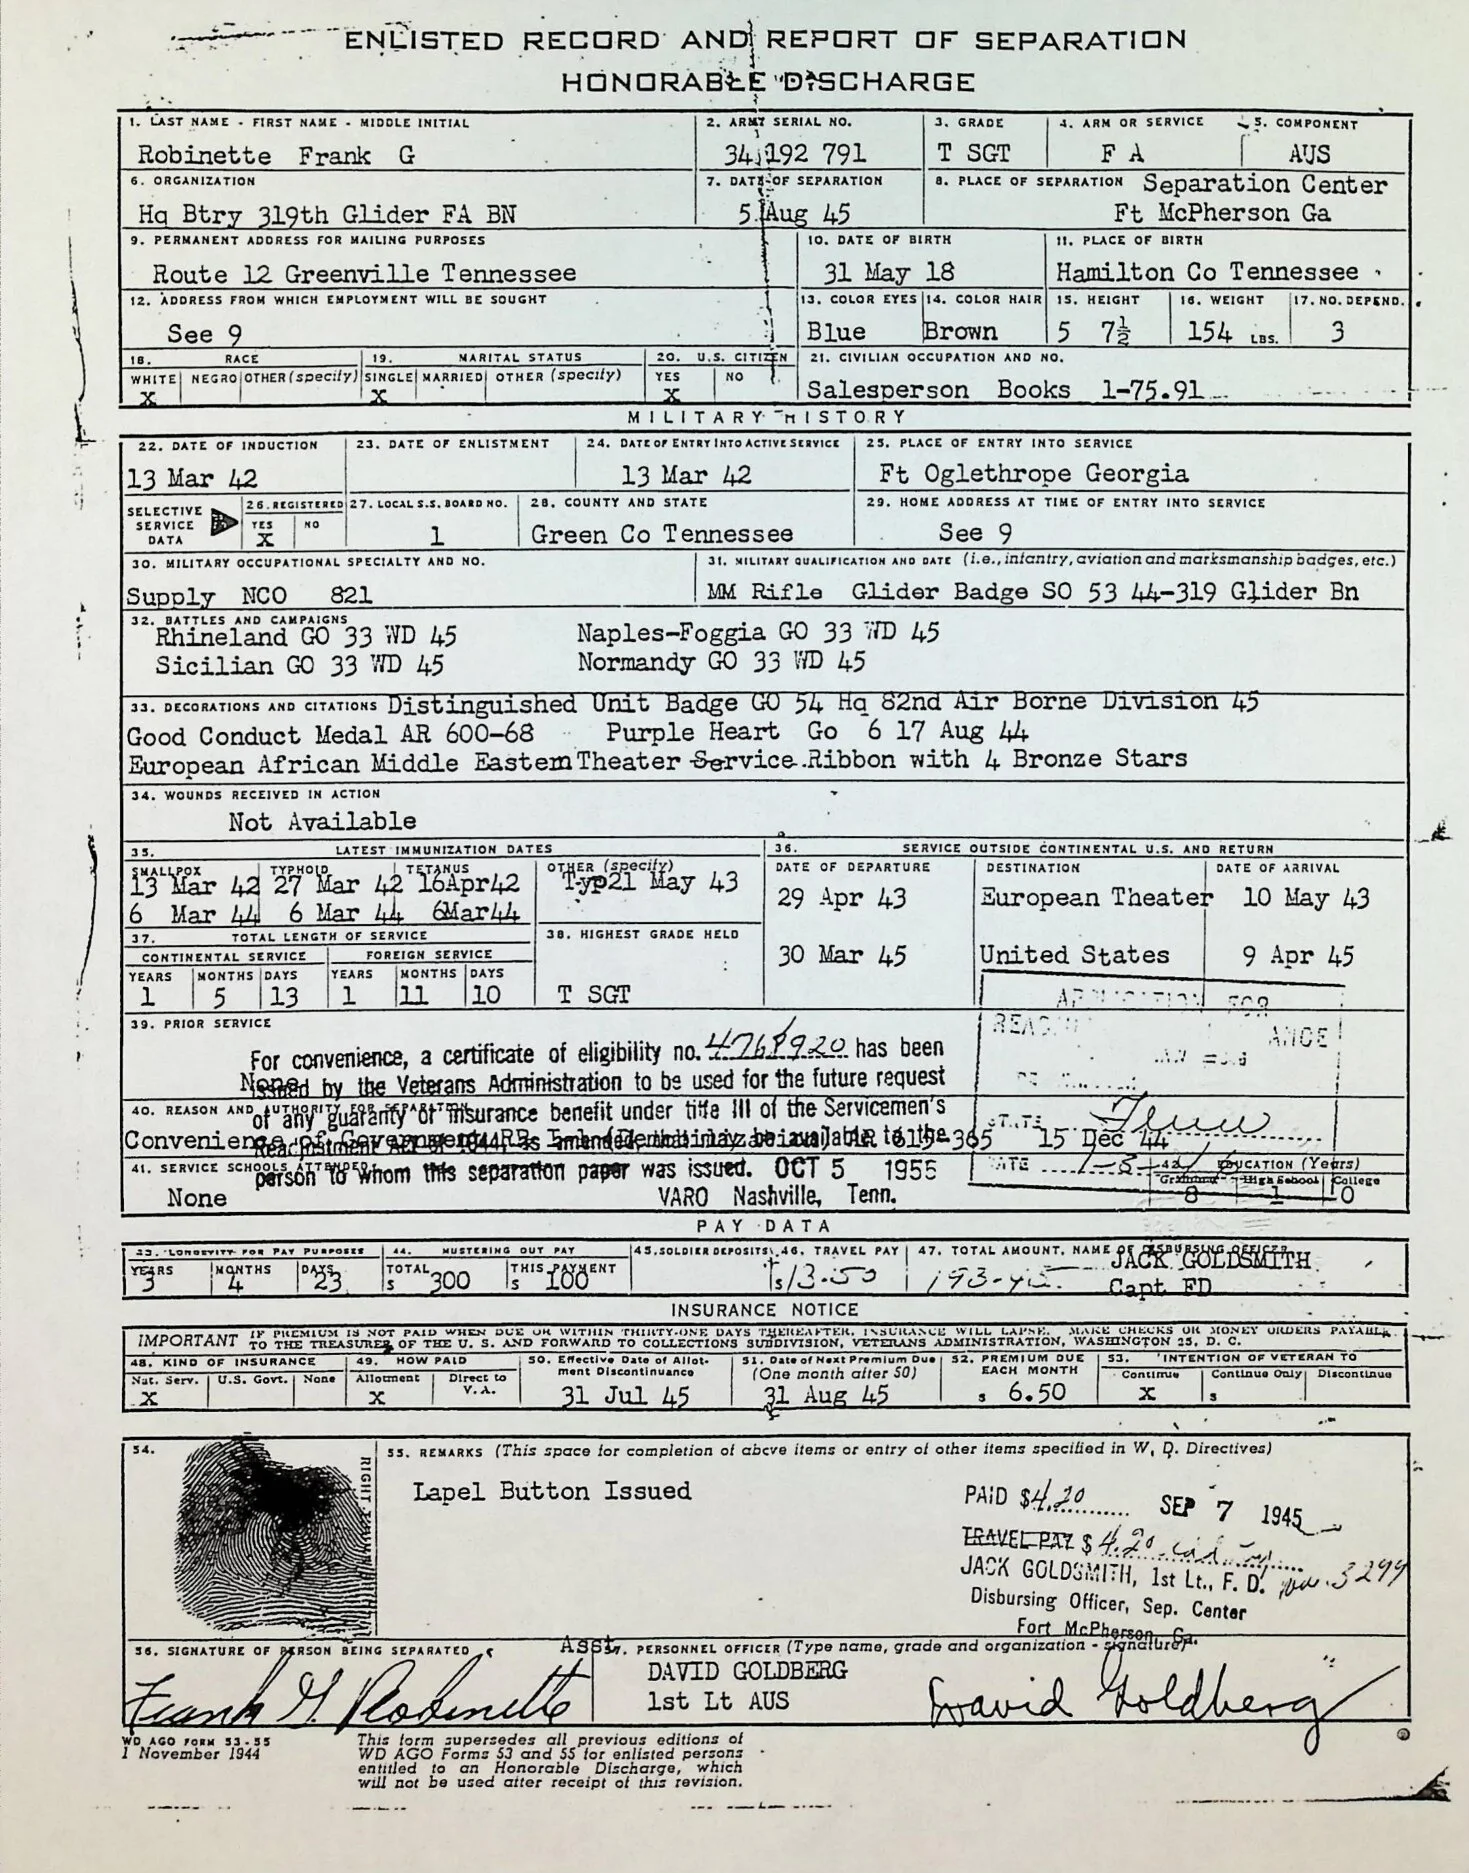 ENLISTED RECORD AND REPORT OF SEPARATION
HONORABLE DISCHARGE
1. LAST NAME - FIRST NAME - MIDDLE INITIAL
Robinette Frank G
2. ARMY SERIAL NO.
34 192 791
3. GRADE
T SGT
4. ARM OR SERVICE
F A
5. COMPONENT
AUS
6. ORGANIZATION
Hq Btry 319th Glider FA BN
7. DATE OF SEPARATION
5 Aug 45
8. PLACE OF SEPARATION Separation Center
Ft McPherson Ga
9. PERMANENT ADDRESS FOR MAILING PURPOSES
Route 12 Greenville Tennessee
10. DATE OF BIRTH
31 May 18
11. PLACE OF BIRTH
Hamilton Co Tennessee
12. ADDRESS FROM WHICH EMPLOYMENT WILL BE SOUGHT
See 9
13. COLOR EYES
Blue
14. COLOR HAIR
Brown
15. HEIGHT
5 7½
16. WEIGHT
154 LBS.
17. NO. DEPEND.
3
18. RACE
WHITE NEGRO OTHER (specify)
X
19. MARITAL STATUS
SINGLE MARRIED OTHER (specify)
X
20. U.S. CITIZEN
YES NO
X
21. CIVILIAN OCCUPATION AND NO.
Salesperson Books 1-75.91
MILITARY HISTORY
22. DATE OF INDUCTION
13 Mar 42
23. DATE OF ENLISTMENT
24. DATE OF ENTRY INTO ACTIVE SERVICE
13 Mar 42
25. PLACE OF ENTRY INTO SERVICE
Ft Oglethrope Georgia
SELECTIVE
SERVICE
DATA
26. REGISTERED
YES NO
X
27. LOCAL S.S. BOARD NO.
1
28. COUNTY AND STATE
Green Co Tennessee
29. HOME ADDRESS AT TIME OF ENTRY INTO SERVICE
See 9
30. MILITARY OCCUPATIONAL SPECIALTY AND NO.
Supply NCO 821
31. MILITARY QUALIFICATION AND DATE (i.e., infantry, aviation and marksmanship badges, etc.)
MM Rifle Glider Badge SO 53 44-319 Glider Bn
32. BATTLES AND CAMPAIGNS
Rhineland GO 33 WD 45 Naples-Foggia GO 33 WD 45
Sicilian GO 33 WD 45 Normandy GO 33 WD 45
33. DECORATIONS AND CITATIONS Distinguished Unit Badge GO 54 Hq 82nd Air Borne Division 45
Good Conduct Medal AR 600-68 Purple Heart Go 6 17 Aug 44
European African Middle Eastern Theater Service Ribbon with 4 Bronze Stars
34. WOUNDS RECEIVED IN ACTION
Not Available
35. LATEST IMMUNIZATION DATES
SMALLPOX TYPHOID TETANUS OTHER (specify)
13 Mar 42 27 Mar 42 16Apr42 Typ21 May 43
6 Mar 44 6 Mar 44 6Mar44
36. SERVICE OUTSIDE CONTINENTAL U.S. AND RETURN
DATE OF DEPARTURE DESTINATION DATE OF ARRIVAL
29 Apr 43 European Theater 10 May 43
30 Mar 45 United States 9 Apr 45
37. TOTAL LENGTH OF SERVICE
CONTINENTAL SERVICE FOREIGN SERVICE
YEARS MONTHS DAYS YEARS MONTHS DAYS
1 5 13 1 11 10
38. HIGHEST GRADE HELD
T SGT
39. PRIOR SERVICE
None
For convenience, a certificate of eligibility no. 4768920 has been
issued by the Veterans Administration to be used for the future request
of any guaranty or insurance benefit under title III of the Servicemen's
Readjustment Act of 1944, as amended, that may be available to the
person to whom this separation paper was issued. OCT 5 1955
VARO Nashville, Tenn.
APPLICATION FOR
STATE Tenn
DATE
40. REASON AND AUTHORITY FOR SEPARATION
Convenience of Government RR 1-1 (Demobilization) AR 615-365 15 Dec 44
41. SERVICE SCHOOLS ATTENDED
None
42. EDUCATION (Years)
Grammar High School College
8 1 0
PAY DATA
43. LONGEVITY FOR PAY PURPOSES
YEARS MONTHS DAYS
3 4 23
44. MUSTERING OUT PAY
TOTAL THIS PAYMENT
$ 300 $ 100
45. SOLDIER DEPOSITS
46. TRAVEL PAY
$ 13.50
47. TOTAL AMOUNT, NAME OF DISBURSING OFFICER
193.45 JACK GOLDSMITH
Capt FD
INSURANCE NOTICE
IMPORTANT IF PREMIUM IS NOT PAID WHEN DUE OR WITHIN THIRTY-ONE DAYS THEREAFTER, INSURANCE WILL LAPSE. MAKE CHECKS OR MONEY ORDERS PAYABLE
TO THE TREASURER OF THE U. S. AND FORWARD TO COLLECTIONS SUBDIVISION, VETERANS ADMINISTRATION, WASHINGTON 25, D. C.
48. KIND OF INSURANCE
Nat. Serv. U.S. Govt. None
X
49. HOW PAID
Allotment Direct to V.A.
X
50. Effective Date of Allot-
ment Discontinuance
31 Jul 45
51. Date of Next Premium Due
(One month after 50)
31 Aug 45
52. PREMIUM DUE
EACH MONTH
$ 6.50
53. INTENTION OF VETERAN TO
Continue Continue Only Discontinue
X $
54.
RIGHT THUMB PRINT
55. REMARKS (This space for completion of above items or entry of other items specified in W. D. Directives)
Lapel Button Issued
PAID $4.20 SEP 7 1945
TRAVEL PAY $ 4.20
JACK GOLDSMITH, 1st Lt., F. D. 3299
Disbursing Officer, Sep. Center
Fort McPherson, Ga.
56. SIGNATURE OF PERSON BEING SEPARATED
Frank G. Robinette
Asst. PERSONNEL OFFICER (Type name, grade and organization - signature)
DAVID GOLDBERG
1st Lt AUS
David Goldberg
WD AGO FORM 53-55
1 November 1944
This form supersedes all previous editions of
WD AGO Forms 53 and 55 for enlisted persons
entitled to an Honorable Discharge, which
will not be used after receipt of this revision.